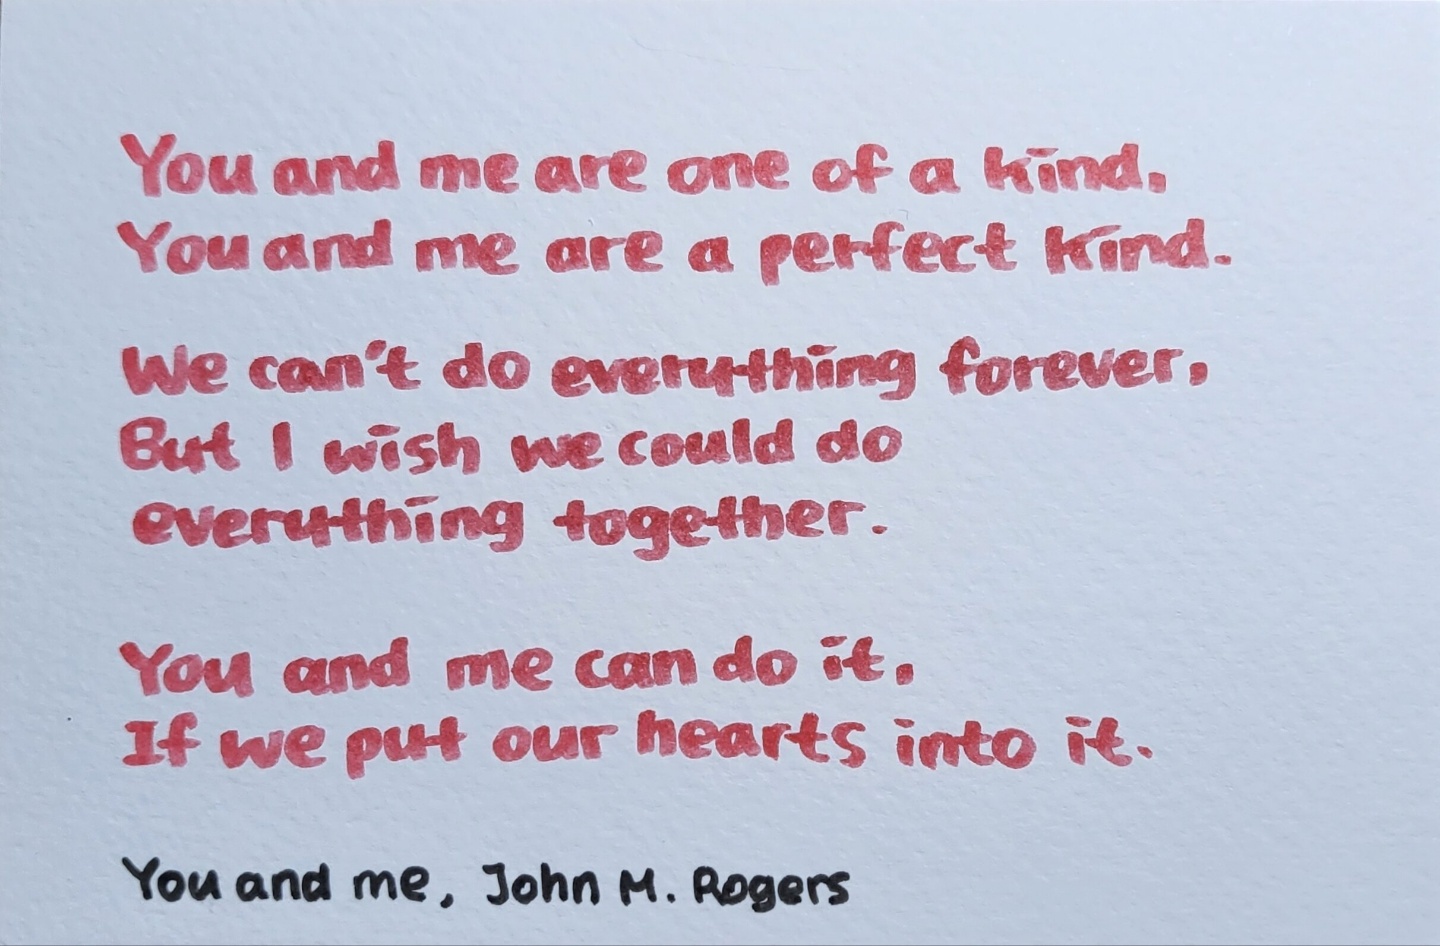 You and me are one of a kind.
You and me are a perfect kind.
We can't do everything forever,
But I wish we could do
everything together.
You and me can do it.
If we put our hearts into it.
You and me, John M. Rogers